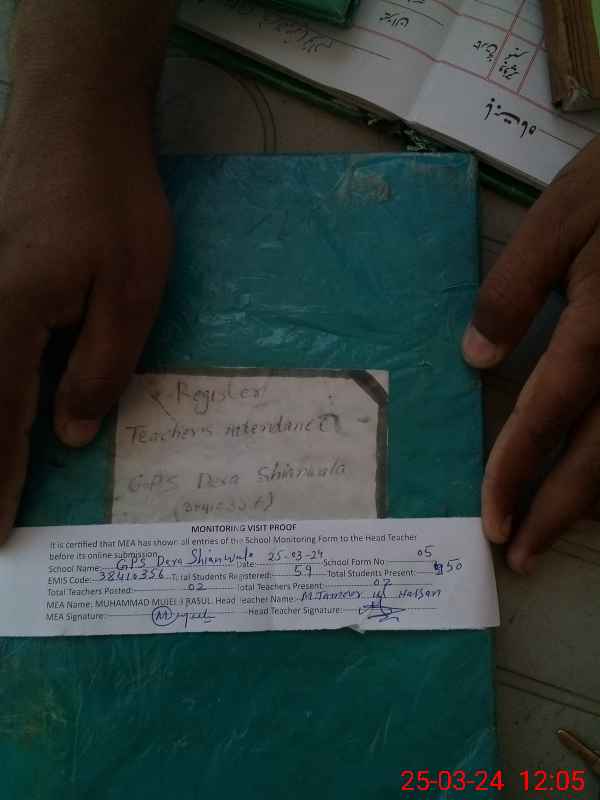 Register
Teacher's Attendance
GPS Dera Shianwala
MONITORING VISIT PROOF
It is certified that MEA has shown all entries of the School Monitoring Form to the Head Teacher
before its online submission
School Name: GPS Dera Shianwala Date: 25-03-24 School Form No 05
EMIS Code: 38410356 Total Students Registered: 59 Total Students Present: 50
Total Teachers Posted: 02 Total Teachers Present: 02
MEA Name: MUHAMMAD MUJEEB RASUL Head Teacher Name: M. Hassan
MEA Signature: Head Teacher Signature:
25-03-24 12:05